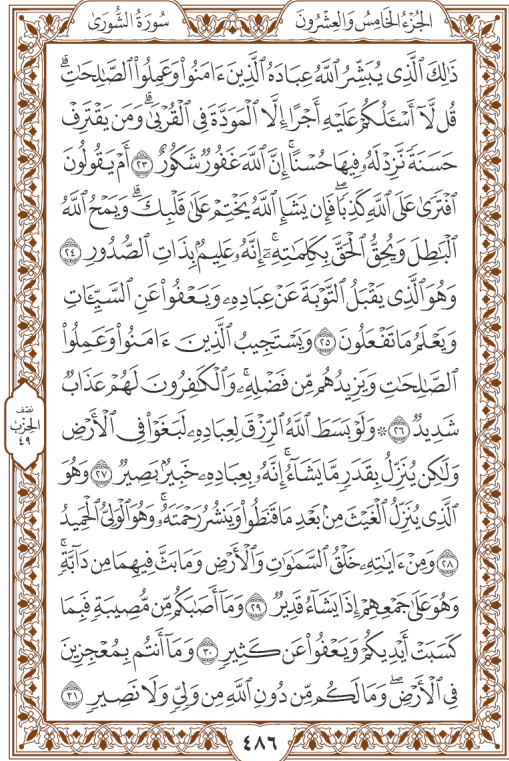 الجُزْءُ الخَامِسُ وَالعِشْرُونَ
سُورَةُ الشُّورَىٰ
ذَٰلِكَ ٱلَّذِى يُبَشِّرُ ٱللَّهُ عِبَادَهُ ٱلَّذِينَ ءَامَنُوا۟ وَعَمِلُوا۟ ٱلصَّٰلِحَٰتِۗ
قُل لَّآ أَسْـَٔلُكُمْ عَلَيْهِ أَجْرًا إِلَّا ٱلْمَوَدَّةَ فِى ٱلْقُرْبَىٰۗ وَمَن يَقْتَرِفْ
حَسَنَةً نَّزِدْ لَهُۥ فِيهَا حُسْنًاۚ إِنَّ ٱللَّهَ غَفُورٌ شَكُورٌ ٢٣ أَمْ يَقُولُونَ
ٱفْتَرَىٰ عَلَى ٱللَّهِ كَذِبًاۖ فَإِن يَشَإِ ٱللَّهُ يَخْتِمْ عَلَىٰ قَلْبِكَۗ وَيَمْحُ ٱللَّهُ
ٱلْبَٰطِلَ وَيُحِقُّ ٱلْحَقَّ بِكَلِمَٰتِهِۦٓۚ إِنَّهُۥ عَلِيمٌۢ بِذَاتِ ٱلصُّدُورِ ٢٤
وَهُوَ ٱلَّذِى يَقْبَلُ ٱلتَّوْبَةَ عَنْ عِبَادِهِۦ وَيَعْفُوا۟ عَنِ ٱلسَّيِّـَٔاتِ
وَيَعْلَمُ مَا تَفْعَلُونَ ٢٥ وَيَسْتَجِيبُ ٱلَّذِينَ ءَامَنُوا۟ وَعَمِلُوا۟
ٱلصَّٰلِحَٰتِ وَيَزِيدُهُم مِّن فَضْلِهِۦۚ وَٱلْكَٰفِرُونَ لَهُمْ عَذَابٌ
شَدِيدٌ ٢٦ ۞ وَلَوْ بَسَطَ ٱللَّهُ ٱلرِّزْقَ لِعِبَادِهِۦ لَبَغَوْا۟ فِى ٱلْأَرْضِ
وَلَٰكِن يُنَزِّلُ بِقَدَرٍ مَّا يَشَآءُۚ إِنَّهُۥ بِعِبَادِهِۦ خَبِيرٌۢ بَصِيرٌ ٢٧ وَهُوَ
ٱلَّذِى يُنَزِّلُ ٱلْغَيْثَ مِنۢ بَعْدِ مَا قَنَطُوا۟ وَيَنشُرُ رَحْمَتَهُۥۚ وَهُوَ ٱلْوَلِىُّ ٱلْحَمِيدُ
٢٨ وَمِنْ ءَايَٰتِهِۦ خَلْقُ ٱلسَّمَٰوَٰتِ وَٱلْأَرْضِ وَمَا بَثَّ فِيهِمَا مِن دَآبَّةٍۚ
وَهُوَ عَلَىٰ جَمْعِهِمْ إِذَا يَشَآءُ قَدِيرٌ ٢٩ وَمَآ أَصَٰبَكُم مِّن مُّصِيبَةٍ فَبِمَا
كَسَبَتْ أَيْدِيكُمْ وَيَعْفُوا۟ عَن كَثِيرٍ ٣٠ وَمَآ أَنتُم بِمُعْجِزِينَ
فِى ٱلْأَرْضِۖ وَمَا لَكُم مِّن دُونِ ٱللَّهِ مِن وَلِىٍّ وَلَا نَصِيرٍ ٣١
نصف
الحزب
٤٩
٤٨٦